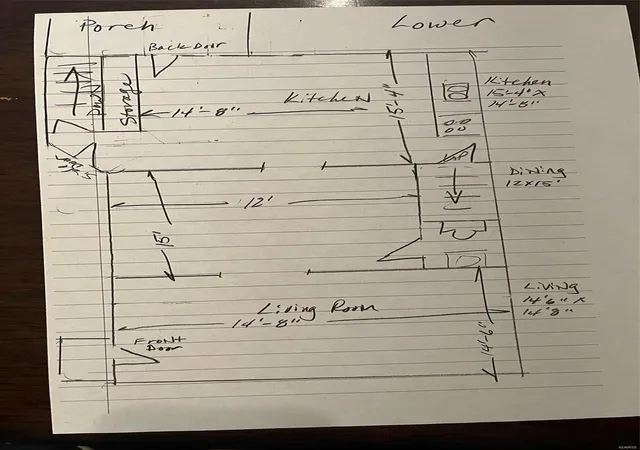 Porch
Lower
Back Door
Storage
14'-8"
Kitchen
15'-4"
Kitchen
15'-4" x
14'-8"
UP
Dining
12x15'
12'
15'
Living Room
14'-8"
14'-6"
Living
14'6" x
14'8"
Front
Door